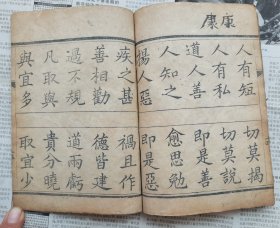 康康
人有短 切莫揭
人有私 切莫說
道人善 即是善
人知之 愈思勉
揚人惡 即是惡
疾之甚 禍且作
善相勸 德皆建
過不規 道兩虧
凡取與 貴分曉
與宜多 取宜少